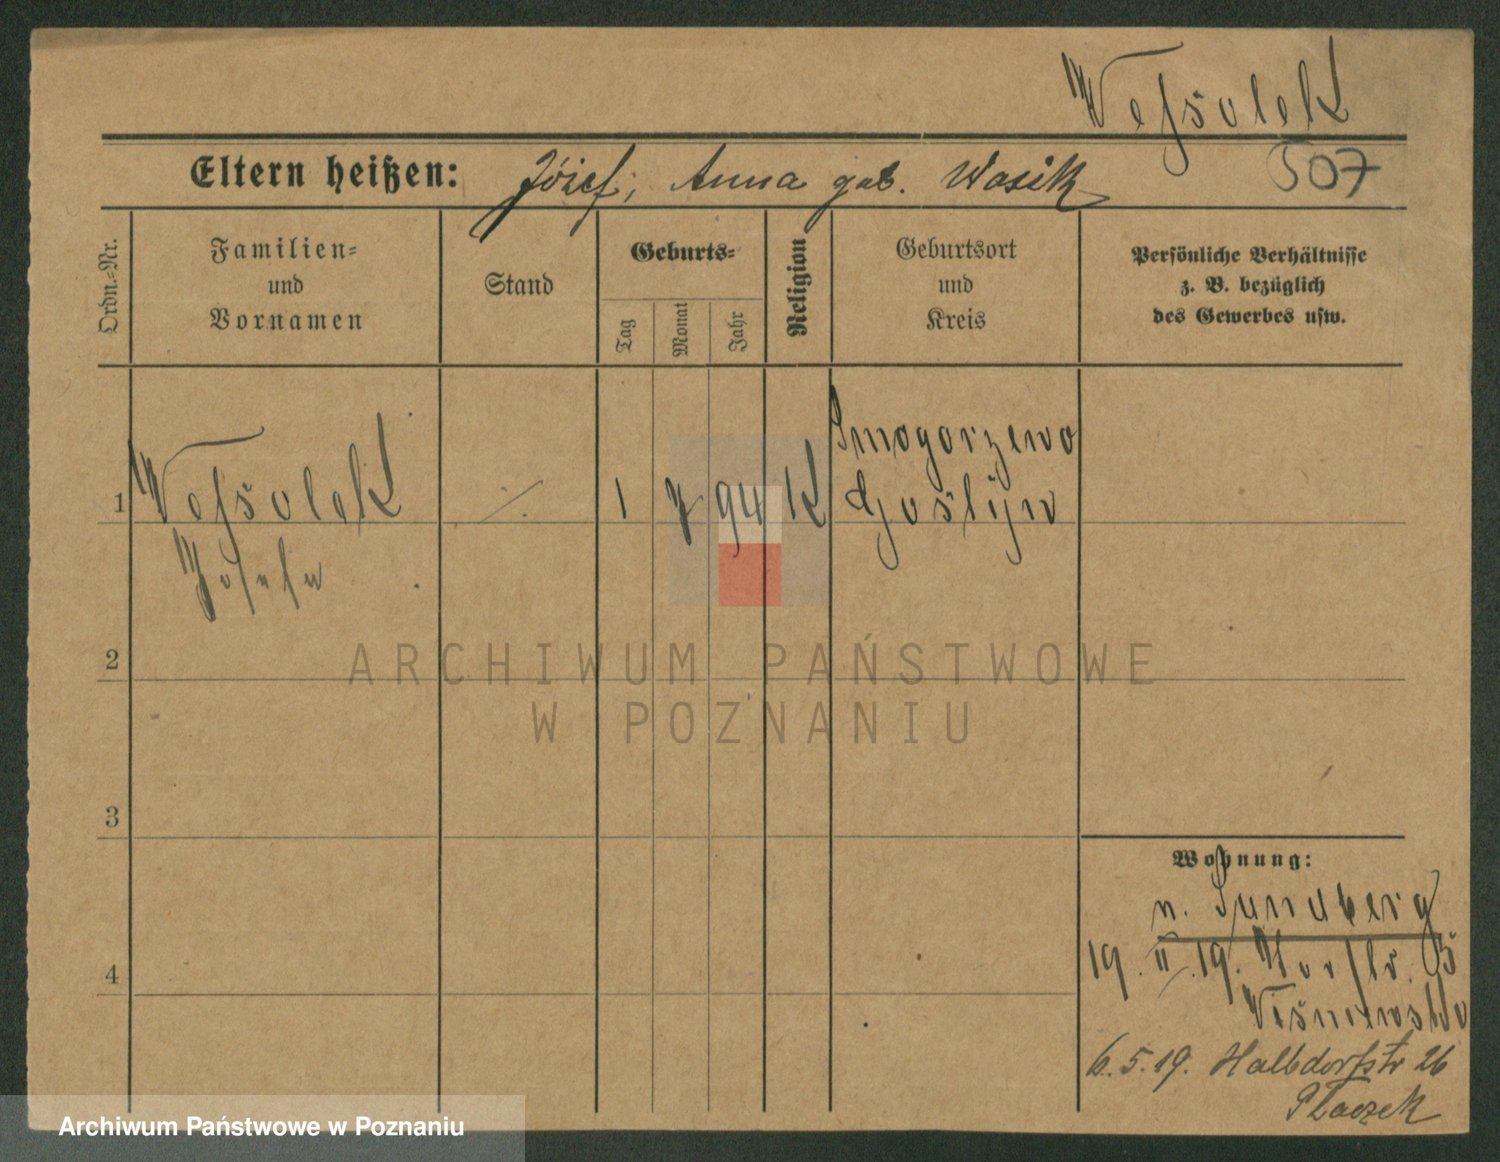 Wesśolek
507
Eltern heißen: Józef, Anna geb. Wosik
Ordn.-Nr.
Familien-
und
Vornamen
Stand
Geburts-
Tag
Monat
Jahr
Religion
Geburtsort
und
Kreis
Persönliche Verhältnisse
z. B. bezüglich
des Gewerbes usw.
Smogorzewo
1 Wesśolek ∕. 1 7 94 K Gostyn
Josefa
2
ARCHIWUM PAŃSTWOWE
W POZNANIU
3
Wohnung:
n.
4 19. II. 19.
6.5.19. Halbdorfstr 26
Ptaczek
Archiwum Państwowe w Poznaniu